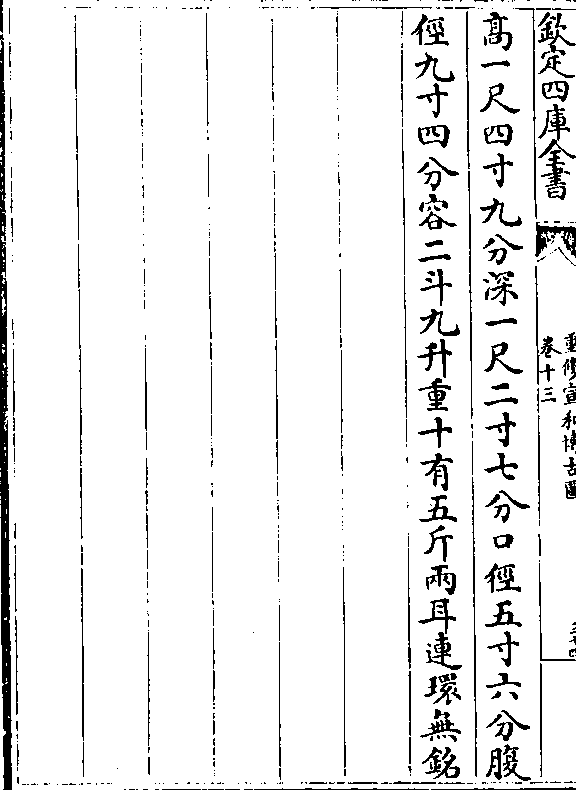 欽定四庫全書
重修宣和博古圖
卷十三
高一尺四寸九分深一尺二寸七分口徑五寸六分腹
徑九寸四分容二斗九升重十有五斤兩耳連環無銘